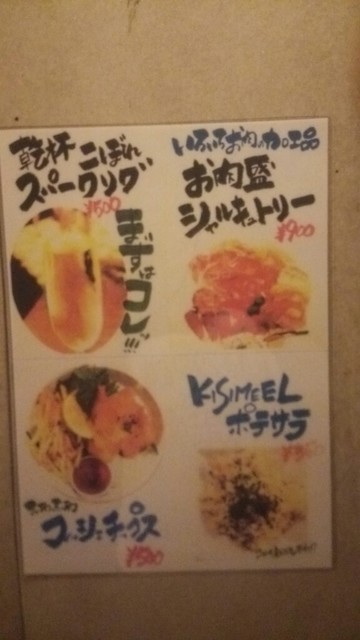 乾杯 こぼれ
スパークリング
¥500
まずはコレ!!!
いろいろお肉の加工品
お肉盛
シャルキュトリー
¥900
KISIMEEL
ポテサラ
フィッシュ&チップス
¥500